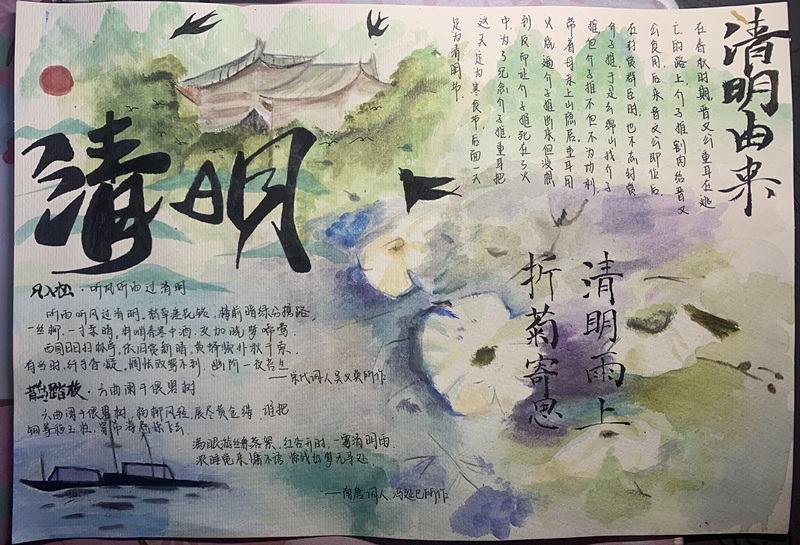 清明由来
在春秋时期,晋文公重耳在逃
亡的路上,介子推割肉给晋文
公食用,后来晋文公即位后,
在封赏群臣时,也不忘封赏
介子推,于是去绵山找介子
推但介子推不但不为功利,
带着母亲上山隐居。重耳用
火烧逼介子推出来但没想
到反而让介子推死在了火
中,为了纪念介子推,重耳把
这天定为寒食节,后面一天
定为清明节。
清明
清明雨上
折菊寄思
风入松·听风听雨过清明
听雨听风过清明,愁草瘗花铭,楼前暗绿分携路,
一丝柳,一寸柔情,料峭春寒中酒,交加晓梦啼莺。
西园日日扫林亭,依旧赏新晴,黄蜂频扑秋千索,
有当时,纤手香凝,惆怅双鸳不到,幽阶一夜苔生
——宋代词人吴文英所作
鹊踏枝·六曲阑干偎碧树
六曲阑干偎碧树,杨柳风轻,展尽黄金缕 谁把
钿筝移玉柱,穿帘海燕
满眼游丝兼落絮,红杏开时,一霎清明雨
浓睡觉来 惊残好梦无寻处
——南唐词人 冯延巳所作